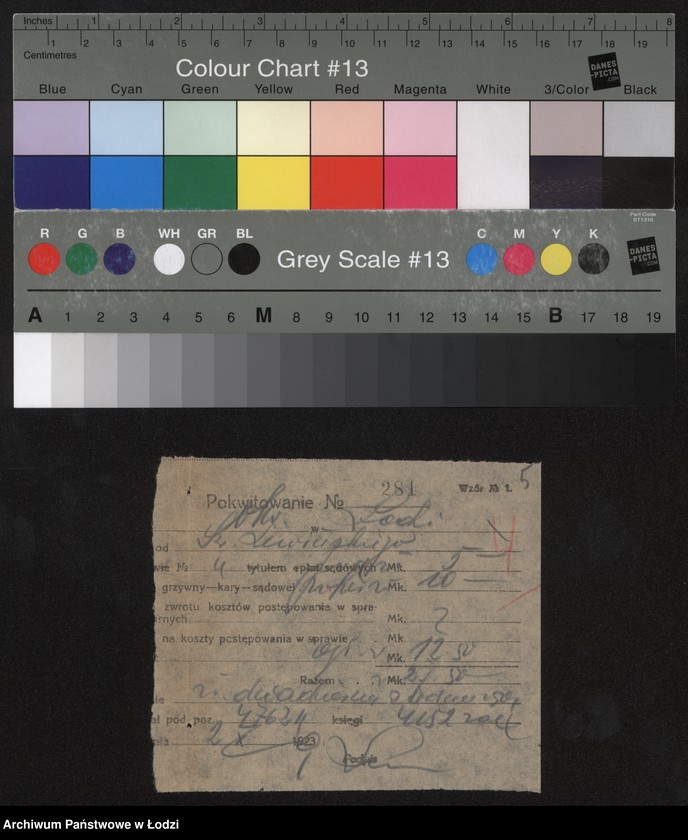 Inches 1 2 3 4 5 6 7 8
1 2 3 4 5 6 7 8 9 10 11 12 13 14 15 16 17 18 19
Centimetres
Colour Chart #13
DANES
-PICTA
.COM
Blue Cyan Green Yellow Red Magenta White 3/Color Black
Part Code
R G B WH GR BL
Grey Scale #13
C M Y K
DANES
-PICTA
.COM
A 1 2 3 4 5 6 M 8 9 10 11 12 13 14 15 B 17 18 19
281 Wzór № 1. 5
Pokwitowanie №
w Łodzi
od
№ 4 tytułem opłat sądowych Mk. 5 —
grzywny—kary—sądowej Mk. 10 —
zwrotu kosztów postępowania w spra-
rnych Mk. 2
na koszty postępowania w sprawie Mk.
Mk. 12 50
Razem Mk. 50
zł. dwadzieścia
pod poz. księgi
2 X 1923
Podpis
Archiwum Państwowe w Łodzi